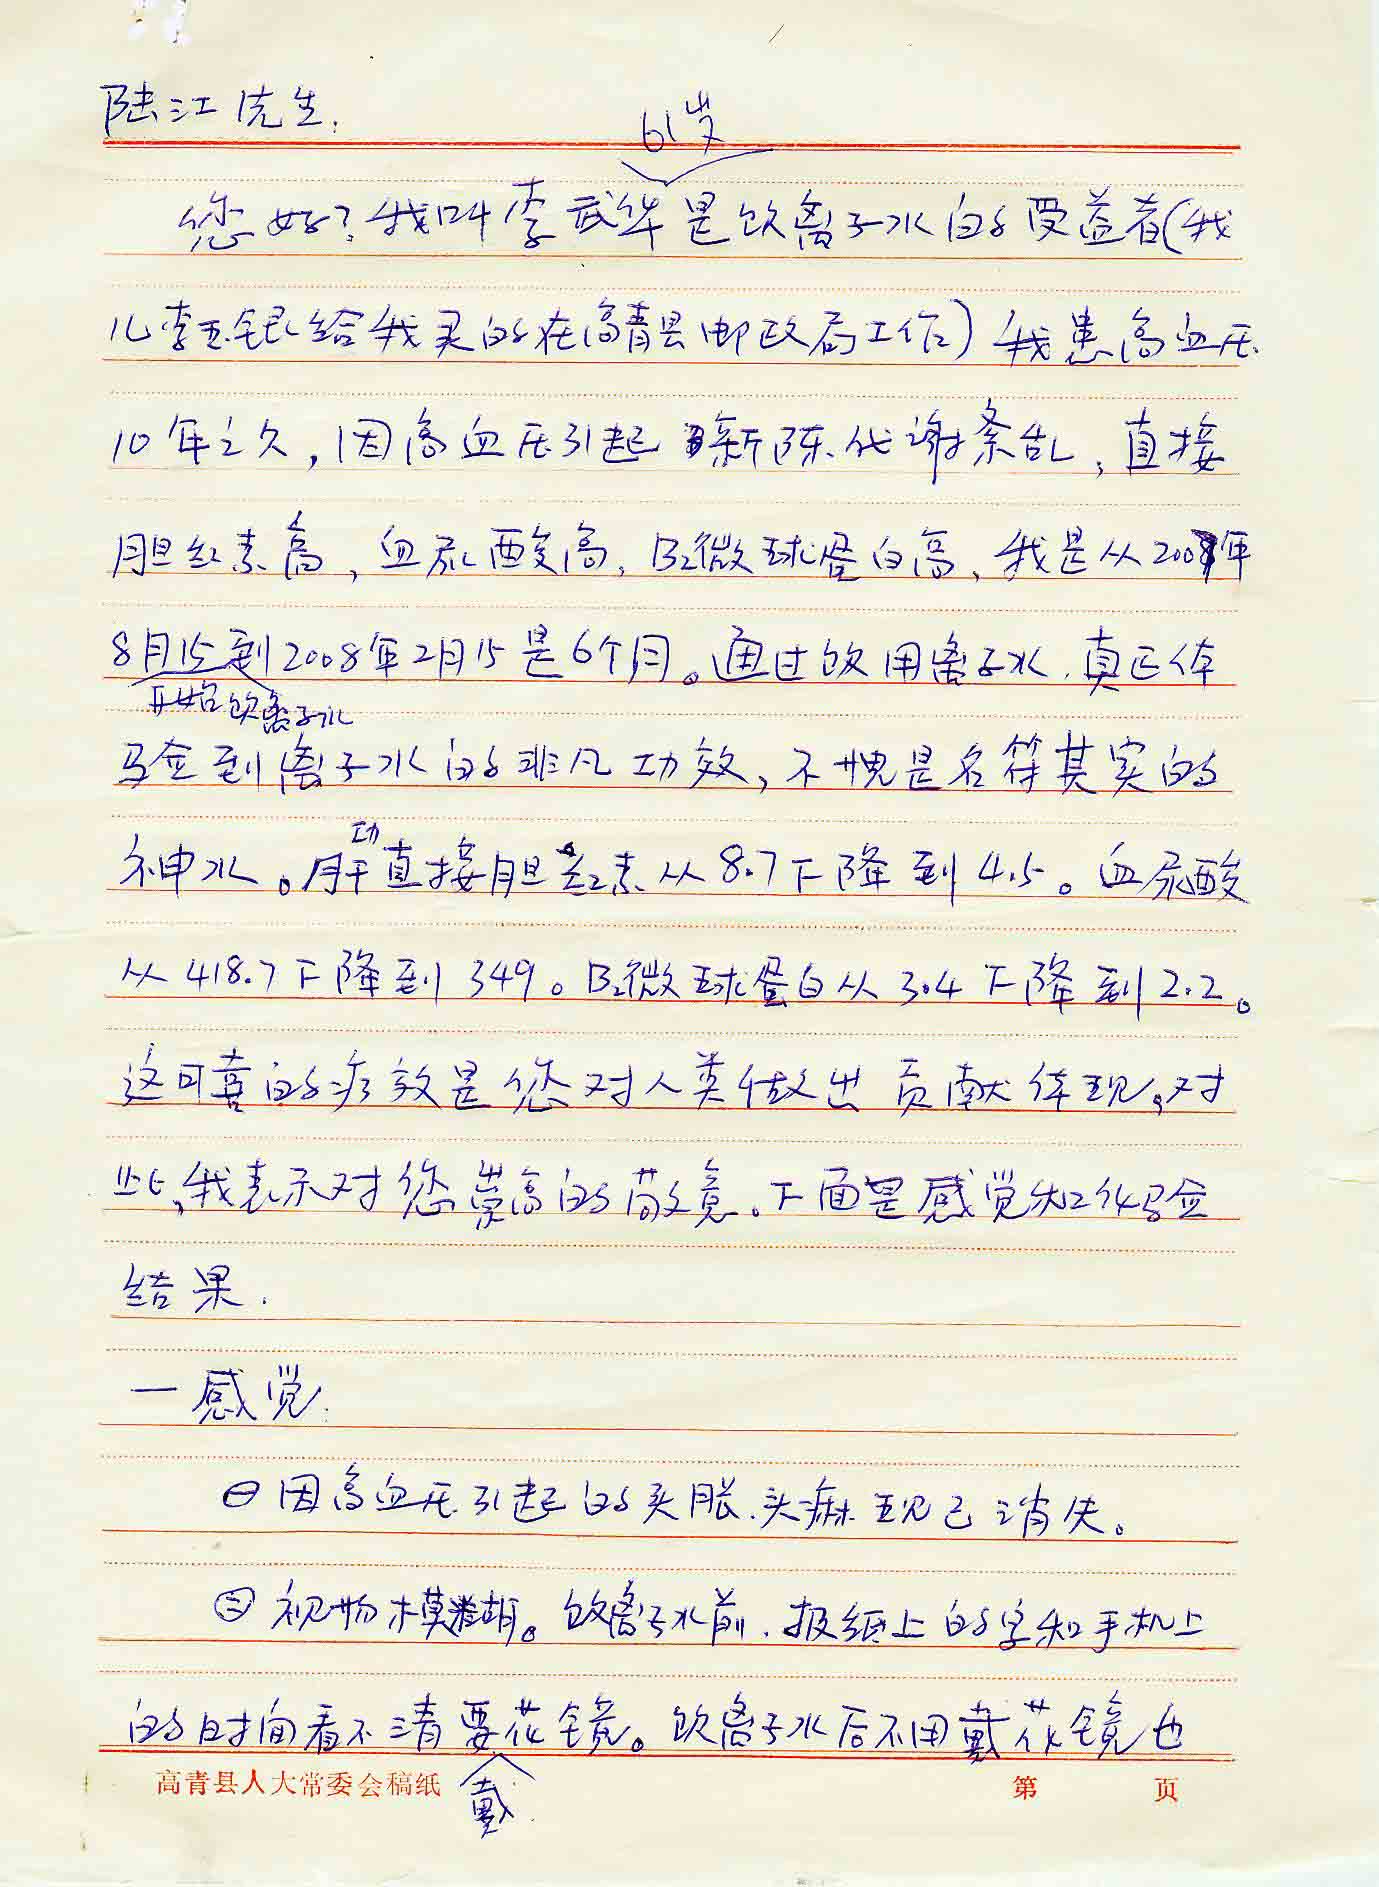 陆江先生:
61岁
您好?我叫李武华是饮离子水的受益者(我
儿李玉银给我买的在高青县邮政局工作)我患高血压
10年之久,因高血压引起新陈代谢紊乱,直接
胆红素高,血尿酸高,B2微球蛋白高、我是从2007年
8月15到2008年2月15是6个月。通过饮用离子水.真正体
开始饮离子水
验到离子水的非凡功效,不愧是名符其实的
神水。肝功直接胆红素从8.7下降到4.5。血尿酸
从418.7下降到349。B2微球蛋白从3.4下降到2.2。
这可喜的疗效是您对人类做出贡献体现,对
此,我表示对您崇高的敬意。下面是感觉和化验
结果.
一感觉:
㊀因高血压引起的头胀.头麻现已消失。
㊁视物模糊。饮离子水前.报纸上的字和手机上
的时间看不清要花镜。饮离子水后不用戴花镜也
戴
高青县人大常委会稿纸 第 页